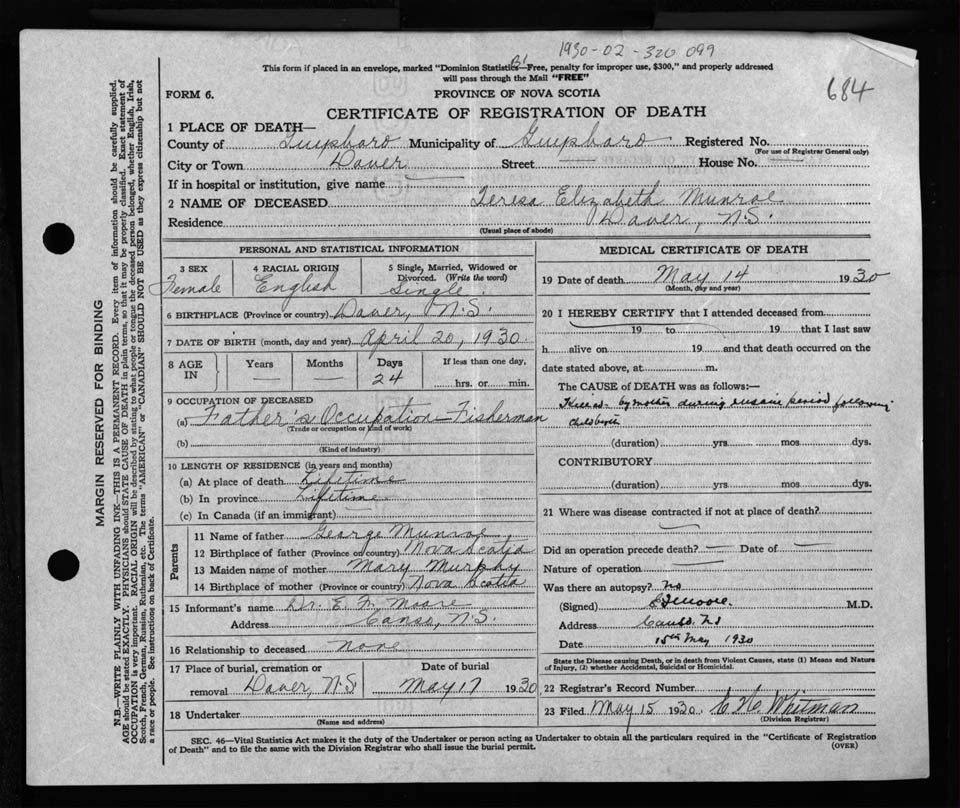 1930-02-320 099
684
This form if placed in an envelope, marked "Dominion Statistics—Free, penalty for improper use, $300," and properly addressed
will pass through the Mail "FREE"
FORM 6.
PROVINCE OF NOVA SCOTIA
CERTIFICATE OF REGISTRATION OF DEATH
1 PLACE OF DEATH—
County of Guysboro Municipality of Guysboro Registered No.
(For use of Registrar General only)
City or Town Dover Street — House No. —
If in hospital or institution, give name
2 NAME OF DECEASED Teresa Elizabeth Munroe
Residence Dover, N.S.
(Usual place of abode)
PERSONAL AND STATISTICAL INFORMATION
3 SEX Female
4 RACIAL ORIGIN English
5 Single, Married, Widowed or Divorced. (Write the word) Single.
6 BIRTHPLACE (Province or country) Dover, N.S.
7 DATE OF BIRTH (month, day and year) April 20, 1930.
8 AGE IN Years — Months — Days 24 If less than one day, hrs. or min.
9 OCCUPATION OF DECEASED
(a) Father's Occupation—Fisherman
(Trade or occupation or kind of work)
(b)
(Kind of industry)
10 LENGTH OF RESIDENCE (in years and months)
(a) At place of death Lifetime
(b) In province Lifetime.
(c) In Canada (if an immigrant) —
Parents
11 Name of father George Munroe,
12 Birthplace of father (Province or country) Nova Scotia
13 Maiden name of mother Mary Murphy
14 Birthplace of mother (Province or country) Nova Scotia
15 Informant's name Dr. E. F. Moore
Address Canso, N.S.
16 Relationship to deceased None
17 Place of burial, cremation or removal Dover, N.S. Date of burial May 17 1930
18 Undertaker
(Name and address)
MEDICAL CERTIFICATE OF DEATH
19 Date of death May 14 1930
(Month, day and year)
20 I HEREBY CERTIFY that I attended deceased from
19 to 19 that I last saw
h alive on 19 and that death occurred on the
date stated above, at m.
The CAUSE OF DEATH was as follows:—
Killed by mother during insane period following
childbirth
(duration) yrs mos dys.
CONTRIBUTORY
(duration) yrs mos dys.
21 Where was disease contracted if not at place of death?
Did an operation precede death? — Date of —
Nature of operation
Was there an autopsy? No
(Signed) E F Moore. M.D.
Address Canso. NS
Date 15th May 1930
State the Disease causing Death, or in death from Violent Causes, state (1) Means and Nature
of Injury, (2) whether Accidental, Suicidal or Homicidal.
22 Registrar's Record Number
23 Filed May 15 1930. Whitman
(Division Registrar)
SEC. 46—Vital Statistics Act makes it the duty of the Undertaker or person acting as Undertaker to obtain all the particulars required in the "Certificate of Registration
of Death" and to file the same with the Division Registrar who shall issue the burial permit.
(OVER)
MARGIN RESERVED FOR BINDING
N.B.—WRITE PLAINLY WITH UNFADING INK—THIS IS A PERMANENT RECORD. Every item of information should be carefully supplied.
AGE should be stated EXACTLY. PHYSICIANS should STATE CAUSE OF DEATH in plain terms, so that it may be properly classified. Exact statement of
OCCUPATION is very important. RACIAL ORIGIN will be described by stating to what people or tongue the deceased person belonged, whether English, Irish,
Scotch, French, German, Russian, Ruthenian, etc. The terms "AMERICAN" or "CANADIAN" SHOULD NOT BE USED as they express citizenship but not
a race or people. See instructions on back of Certificate.